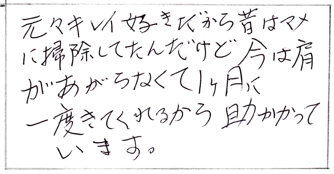 元々キレイ好きだから昔はマメ
に掃除してたんだけど今は肩
があがらなくて1ヶ月に
一度きてくれるから助かって
います。